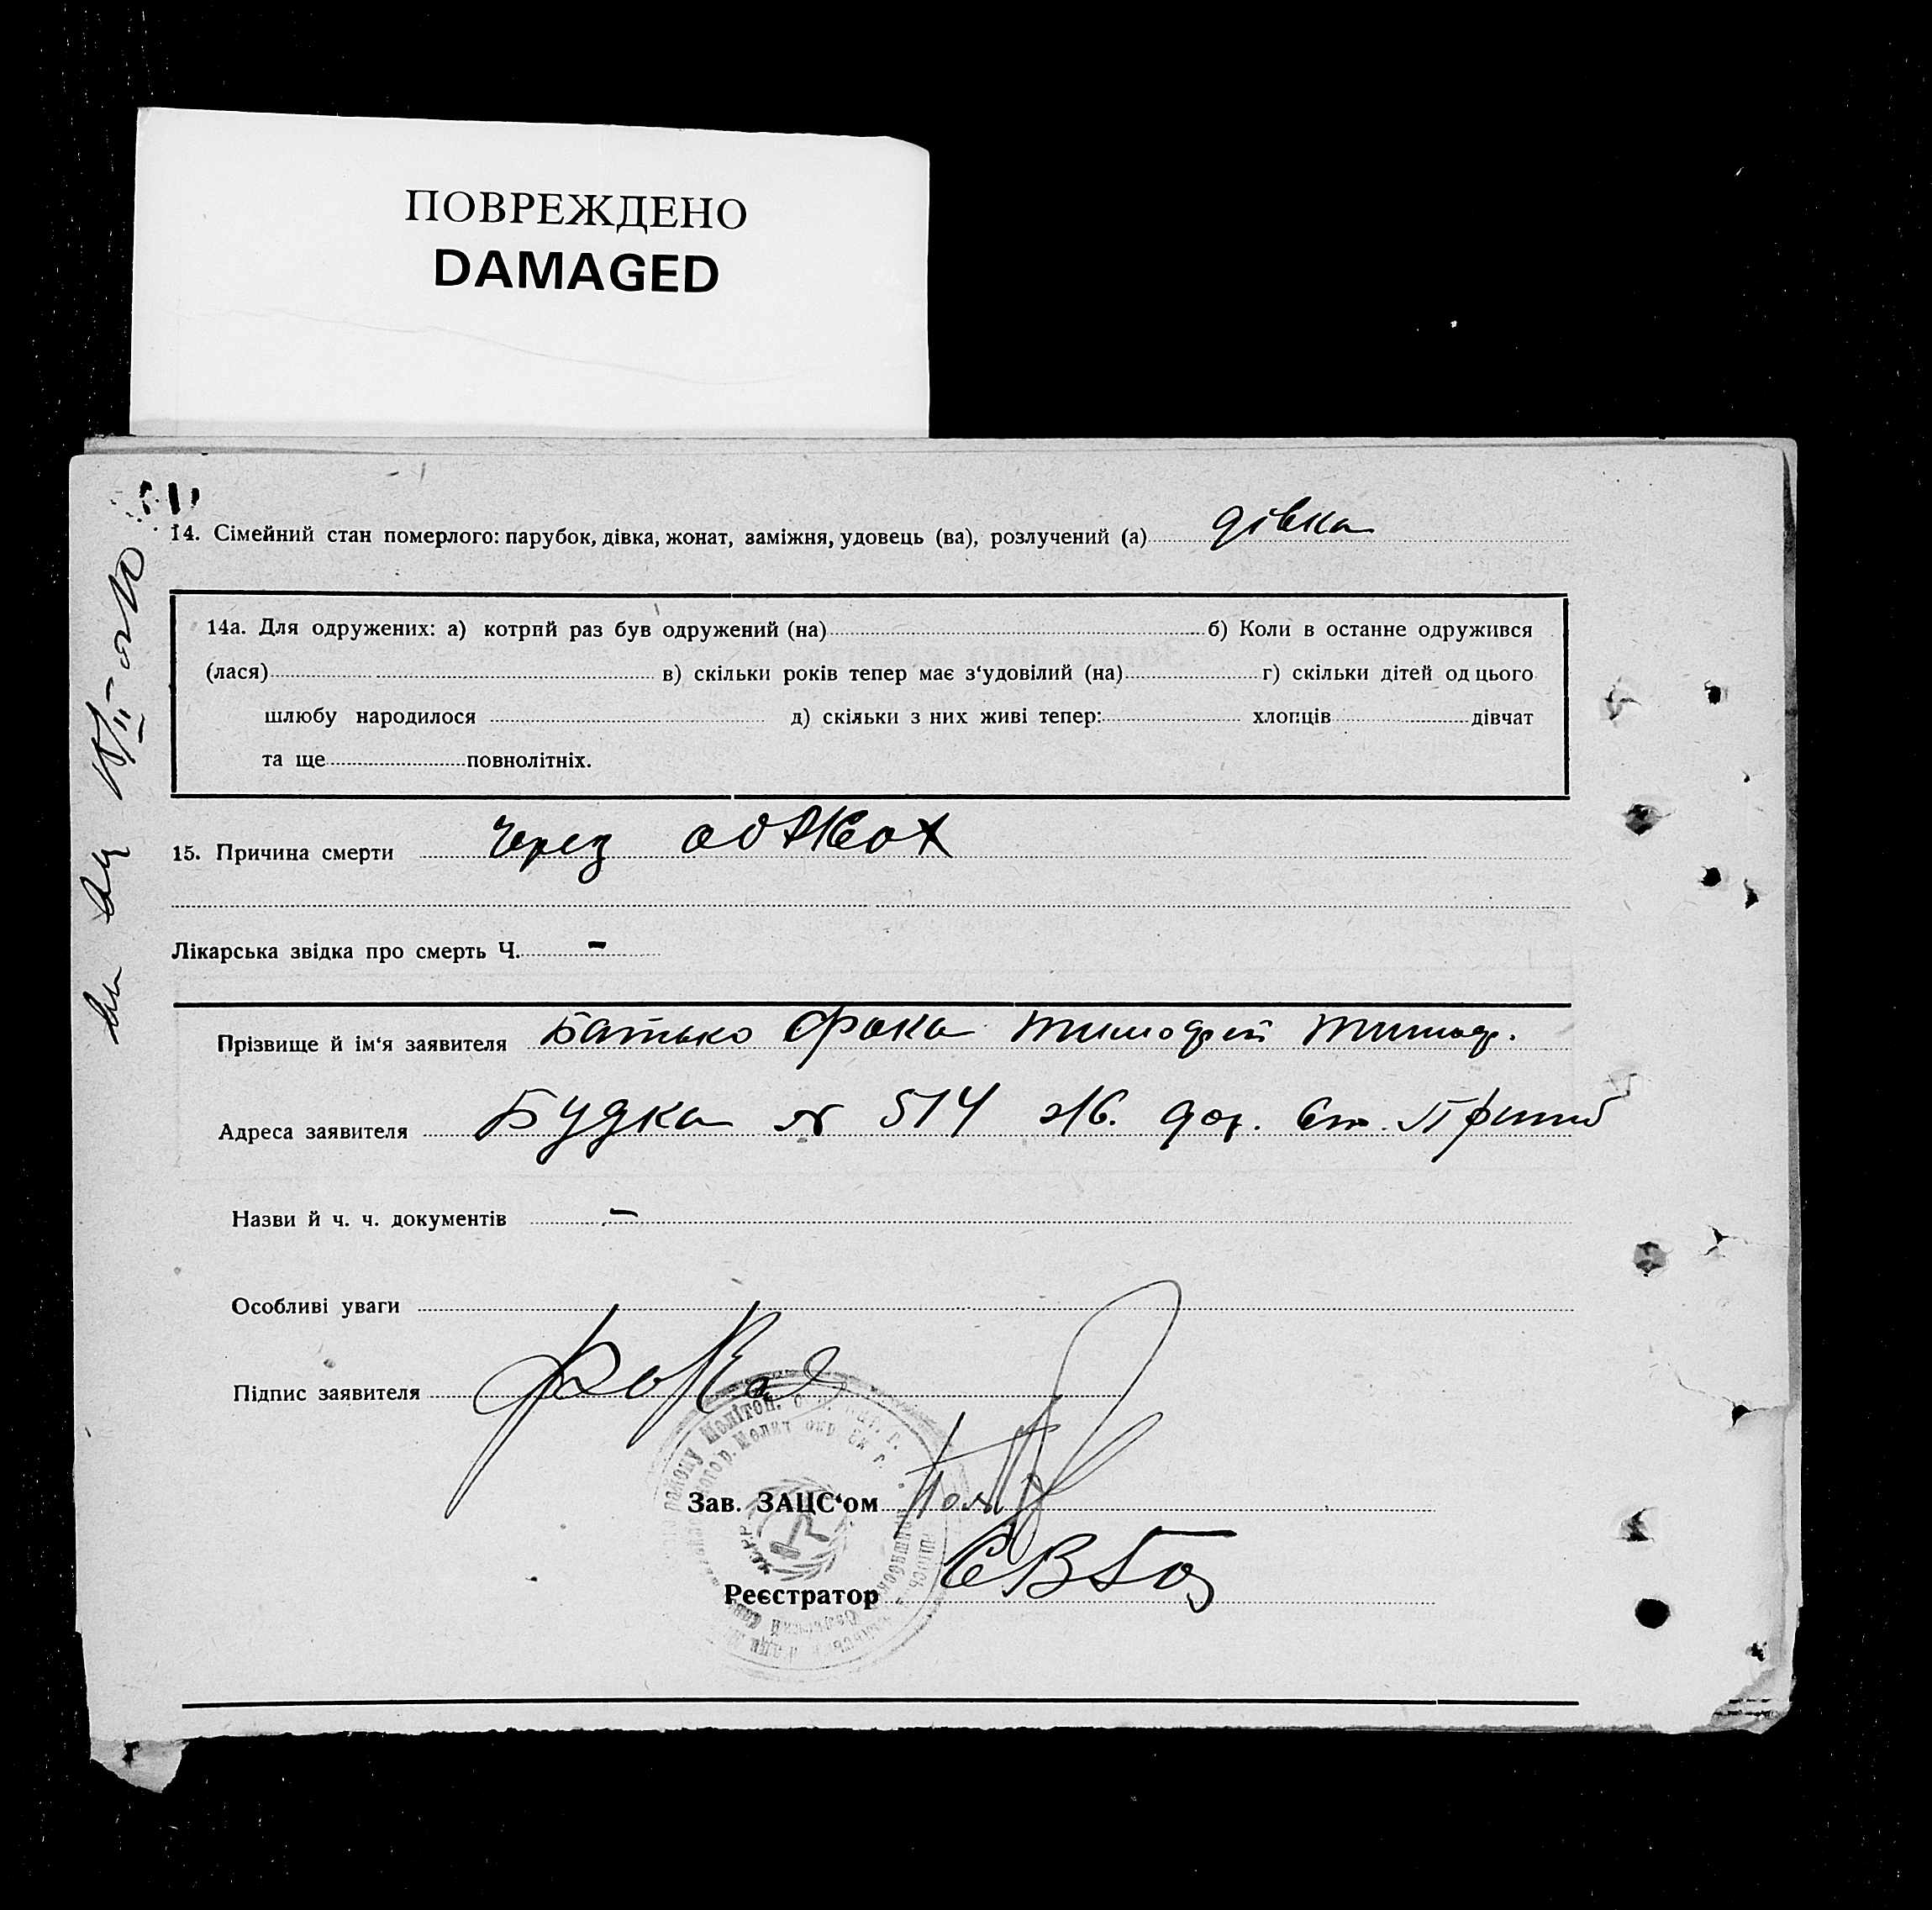 ПОВРЕЖДЕНО
DAMAGED
14. Сімейний стан померлого: парубок, дівка, жонат, заміжня, удовець (ва), розлучений (а) дівка
14а. Для одружених: а) котрий раз був одружений (на) б) Коли в останне одружився
(лася) в) скільки років тепер має з‘удовілий (на) г) скільки дітей од цього
шлюбу народилося д) скільки з них живі тепер: хлопців дівчат
та ще повнолітніх.
15. Причина смерти через
Лікарська звідка про смерть Ч. -
Прізвище й ім‘я заявителя Батько Фока Тимофій Тимоф.
Адреса заявителя Будка № 514 дор. ст.
Назви й ч. ч. документів -
Особливі уваги
Підпис заявителя Фока
Зав. ЗАЦС‘ом
Реєстратор
району Мелітоп.